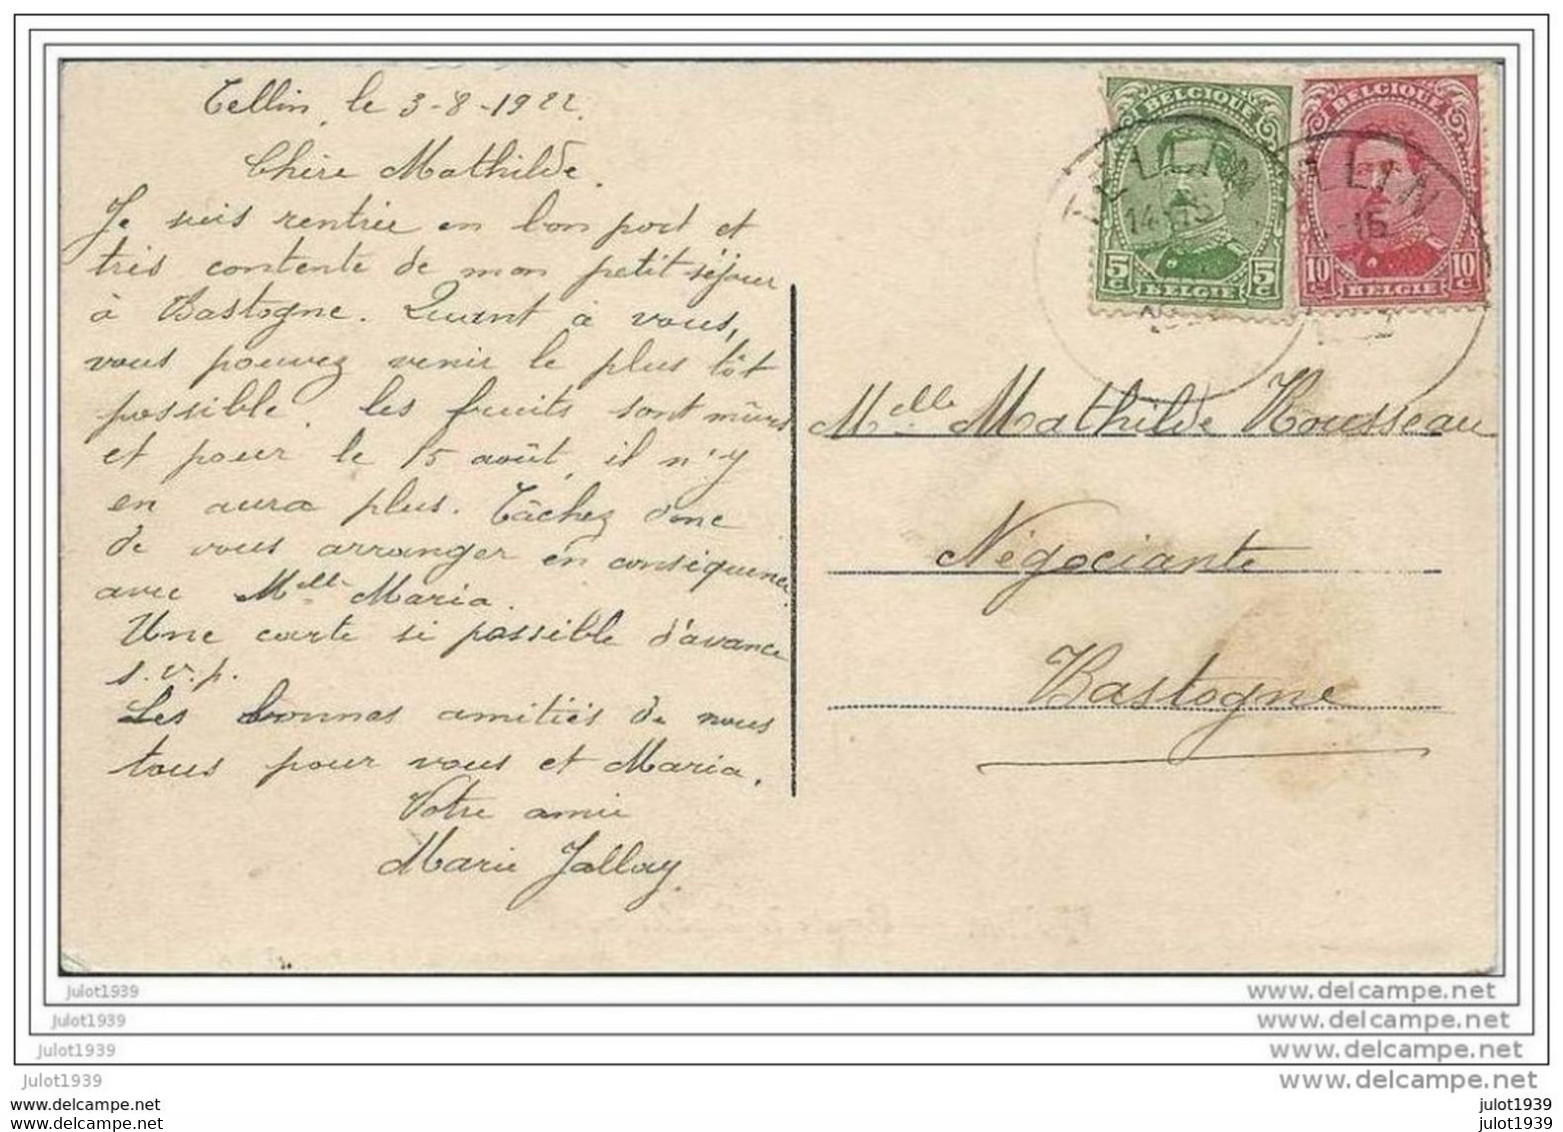 Tellin, le 3-8-1922.
Chère Mathilde,
Je suis rentrée en bon port et
très contente de mon petit séjour
à Bastogne. Quant à vous,
vous pouvez venir le plus tôt
possible, les fruits sont mûrs
et pour le 15 août, il n'y
en aura plus. Tâchez donc
de vous arranger en conséquence
avec Melle Maria.
Une carte si possible d'avance
s.v.p.
Les bonnes amitiés de nous
tous pour vous et Maria.
Votre amie
Marie Jallay.
BELGIQUE
5 C 5 C
BELGIE
BELGIQUE
10 C 10 C
BELGIE
TELLIN
14-15
LLIN
-15
Melle Mathilde Rousseau
Négociante
Bastogne
julot1939
www.delcampe.net
julot1939
www.delcampe.net
julot1939
www.delcampe.net
julot1939
www.delcampe.net
www.delcampe.net
julot1939
www.delcampe.net
julot1939